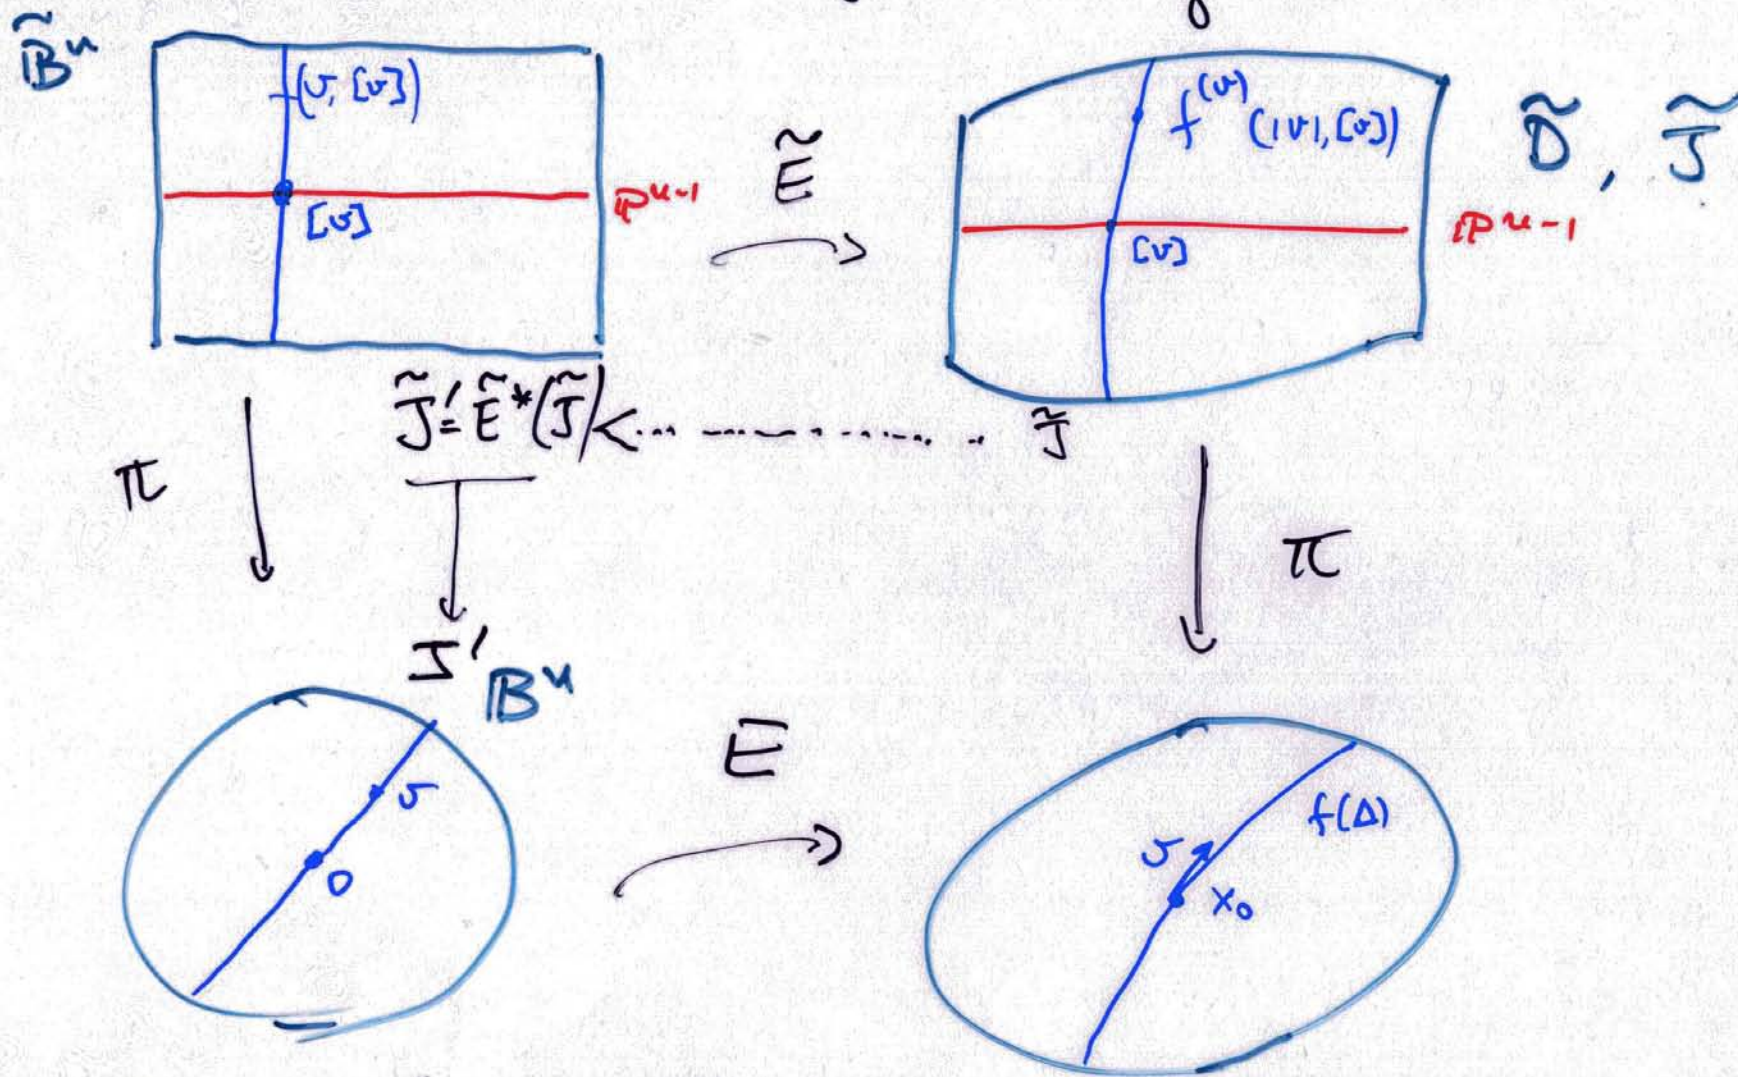 B̃ⁿ
(v, [v])
[v]
ℙⁿ⁻¹
Ẽ
f⁽ᵛ⁾(|v|, [v])
[v]
ℙⁿ⁻¹
D̃, J̃
J̃' = Ẽ*(J̃)
J̃
π
π
J'
𝔹ⁿ
v
0
E
f(Δ)
v
x₀